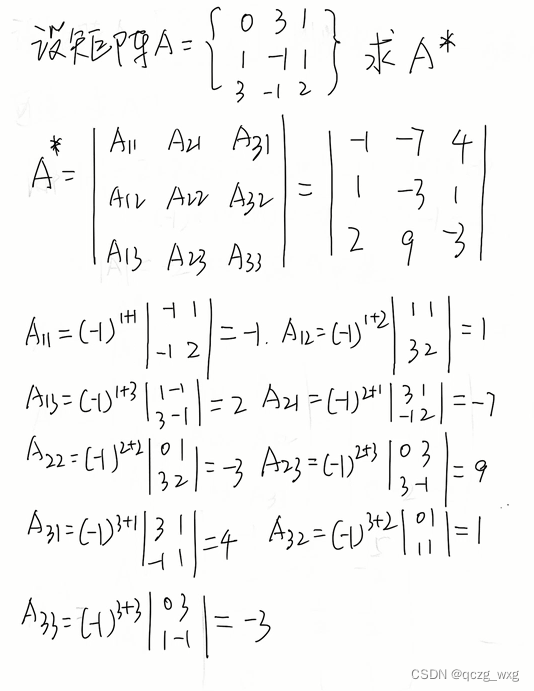 设矩阵A = { 0 3 1
1 -1 1
3 -1 2 } 求 A*
A* = | A11 A21 A31
A12 A22 A32
A13 A23 A33 | = | -1 -7 4
1 -3 1
2 9 -3 |
A11 = (-1)^1+1 | -1 1
-1 2 | = -1. A12 = (-1)^1+2 | 1 1
3 2 | = 1
A13 = (-1)^1+3 | 1 -1
3 -1 | = 2 A21 = (-1)^2+1 | 3 1
-1 2 | = -7
A22 = (-1)^2+2 | 0 1
3 2 | = -3 A23 = (-1)^2+3 | 0 3
3 -1 | = 9
A31 = (-1)^3+1 | 3 1
-1 1 | = 4 A32 = (-1)^3+2 | 0 1
1 1 | = 1
A33 = (-1)^3+3 | 0 3
1 -1 | = -3
CSDN @qczg_wxg